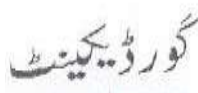 گورڈیکینٹ